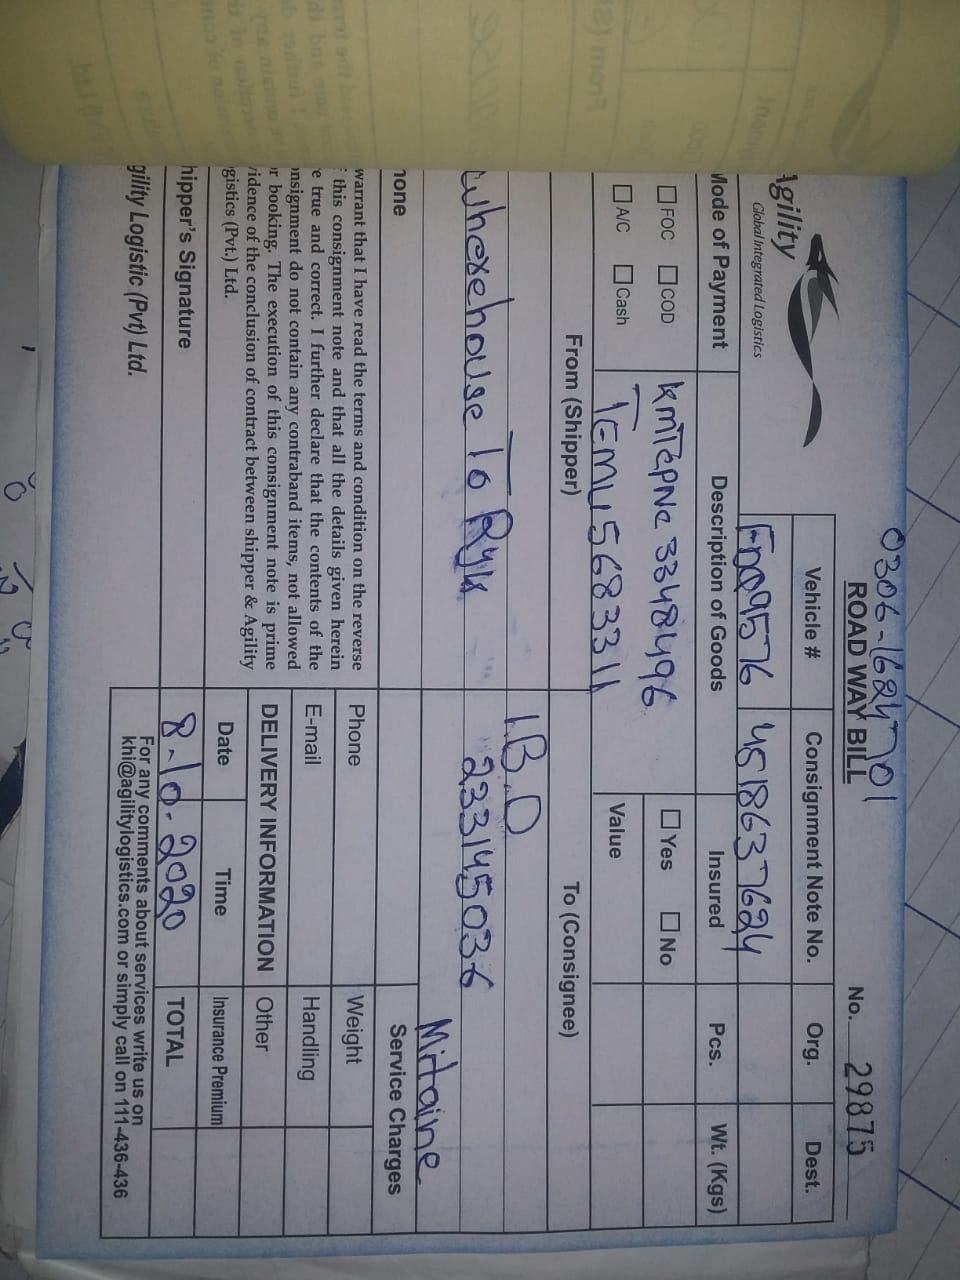 0306-1624701
ROAD WAY BILL
No. 29875
Agility
Global Integrated Logistics
Vehicle # Consignment Note No. Org. Dest.
FDQ9576 4518637624
Mode of Payment Description of Goods Insured Pcs. Wt. (Kgs)
FOC COD Yes No
3348496
A/C Cash Value
TEMU5683311
From (Shipper) To (Consignee)
I.B.O
wherehouse To Ryk 233145036
Mitaine
hone Service Charges
warrant that I have read the terms and condition on the reverse
f this consignment note and that all the details given herein
e true and correct. I further declare that the contents of the
onsignment do not contain any contraband items, not allowed
r booking. The execution of this consignment note is prime
vidence of the conclusion of contract between shipper & Agility
gistics (Pvt.) Ltd.
Phone Weight
E-mail Handling
DELIVERY INFORMATION Other
Date Time Insurance Premium
hipper's Signature 8-10-2020 TOTAL
gility Logistic (Pvt) Ltd.
For any comments about services write us on
khi@agilitylogistics.com or simply call on 111-436-436